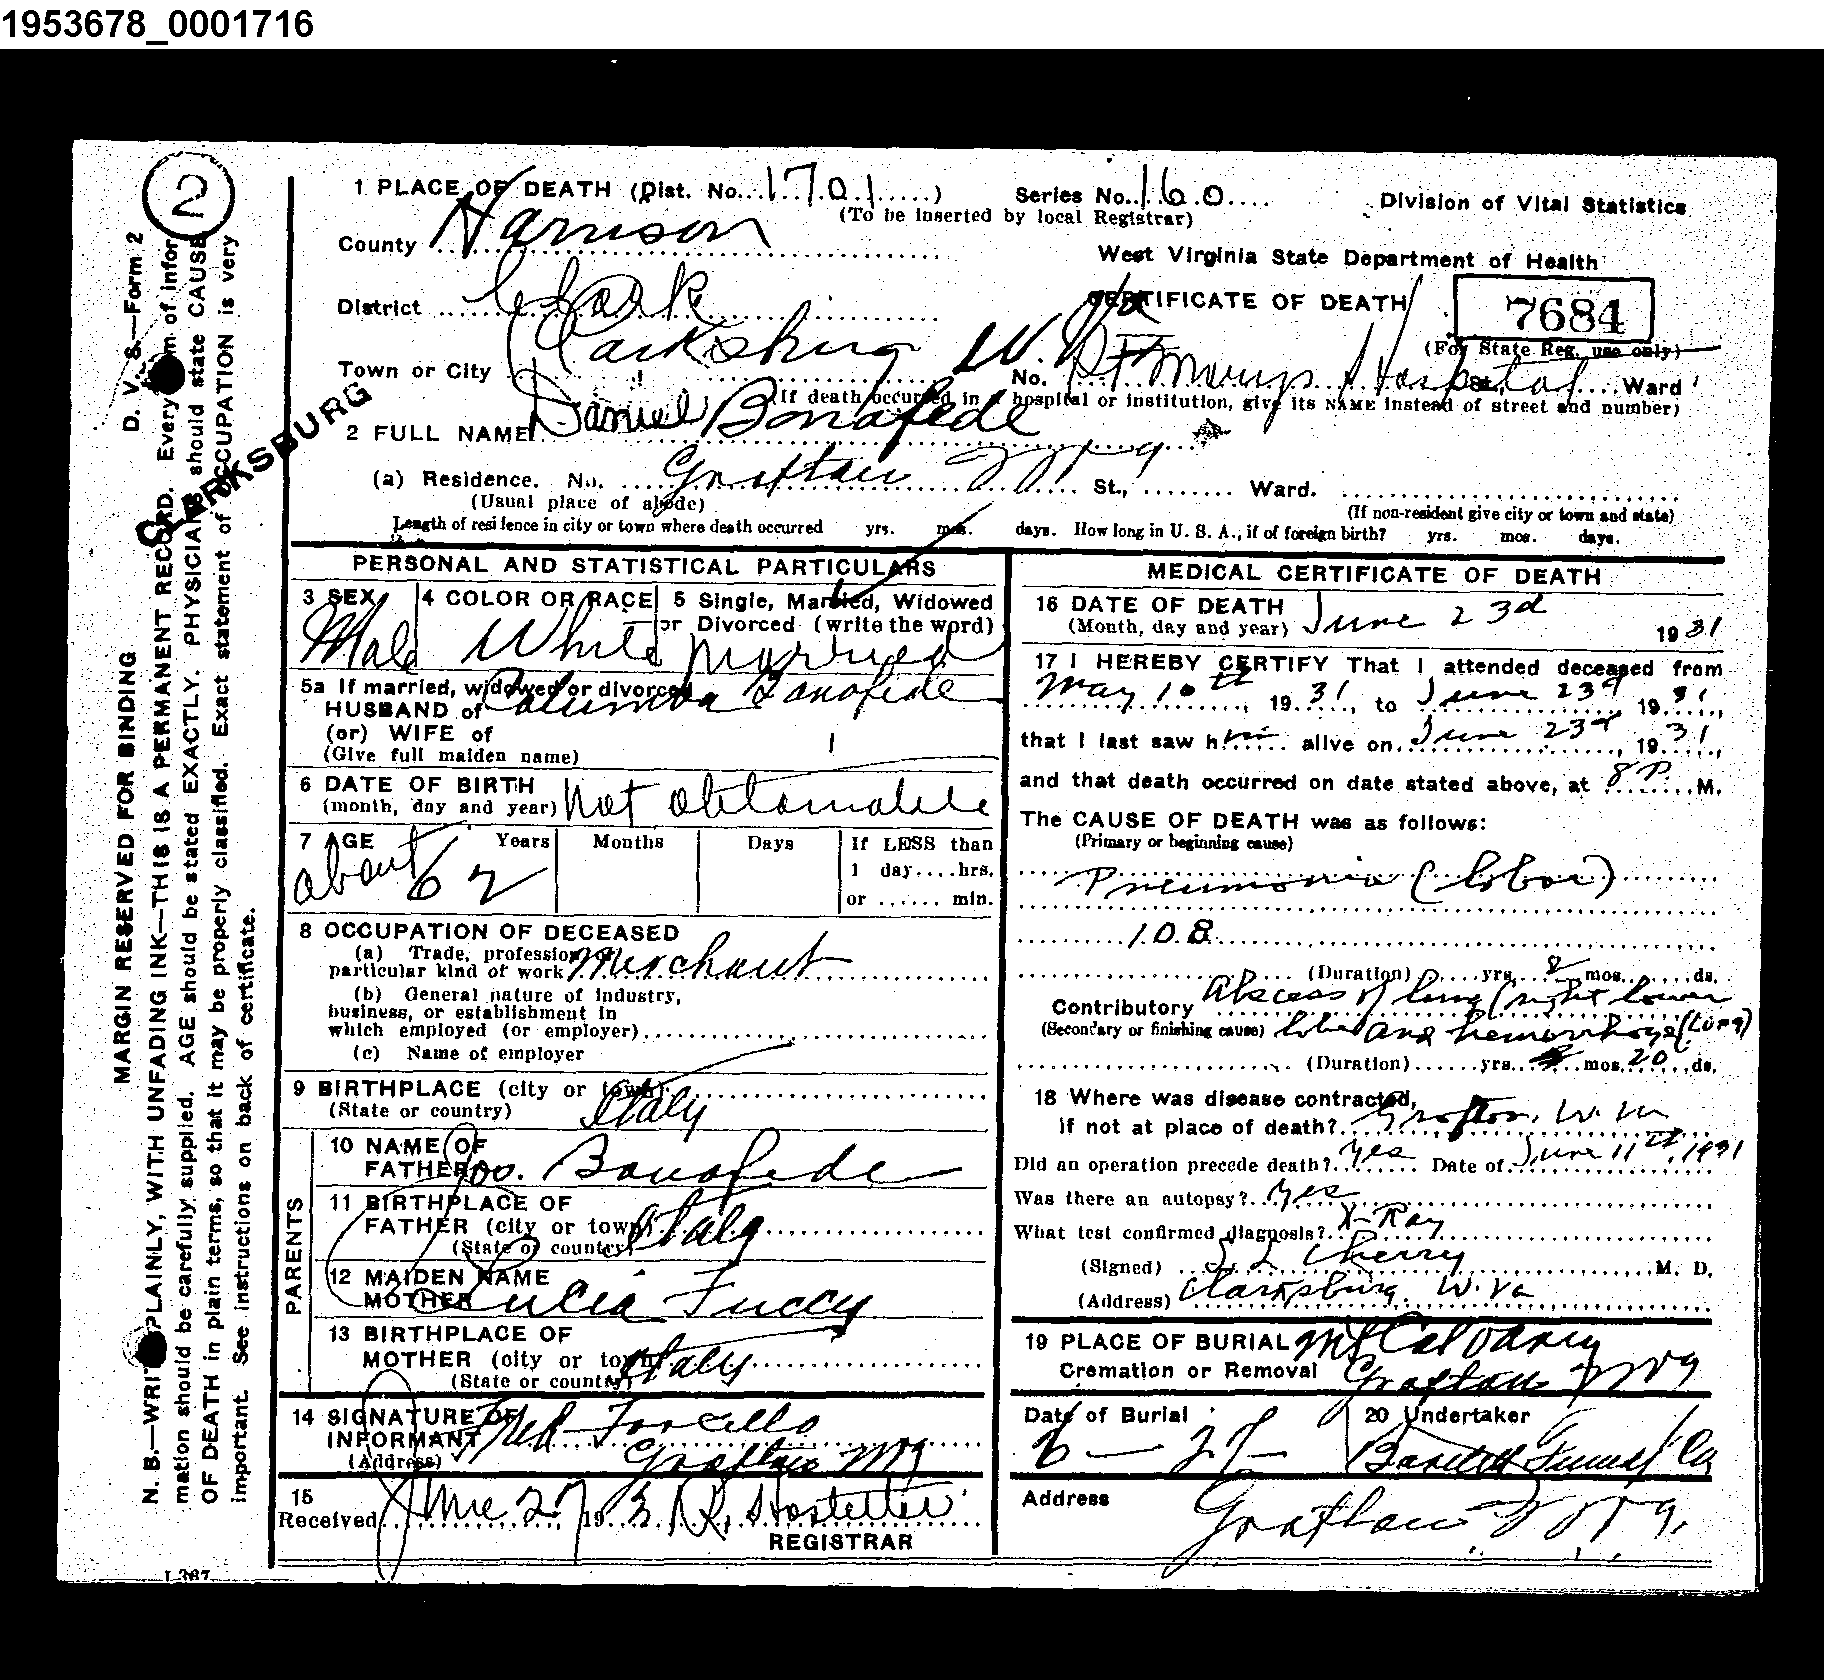 1953678_0001716
2
1 PLACE OF DEATH (Dist. No. 1701) Series No. 160 Division of Vital Statistics
(To be inserted by local Registrar)
County Harrison
West Virginia State Department of Health
District Clark CERTIFICATE OF DEATH 7684
(For State Reg. use only)
Town or City Clarksburg W. Va No. St Marys Hospital St., Ward
(If death occurred in a hospital or institution, give its NAME instead of street and number)
2 FULL NAME Daniel Bonafede
(a) Residence. No. Grafton W Va St., Ward.
(Usual place of abode) (If non-resident give city or town and state)
Length of residence in city or town where death occurred yrs. mos. days. How long in U. S. A., if of foreign birth? yrs. mos. days.
PERSONAL AND STATISTICAL PARTICULARS
3 SEX 4 COLOR OR RACE 5 Single, Married, Widowed
or Divorced (write the word)
Male White Married
5a If married, widowed or divorced
HUSBAND of Columba Bonafede
(or) WIFE of
(Give full maiden name)
6 DATE OF BIRTH
(month, day and year) Not obtainable
7 AGE Years Months Days If LESS than
1 day....hrs.
or ...... min.
about 62
8 OCCUPATION OF DECEASED
(a) Trade, profession or
particular kind of work Merchant
(b) General nature of industry,
business, or establishment in
which employed (or employer)
(c) Name of employer
9 BIRTHPLACE (city or town)
(State or country) Italy
PARENTS
10 NAME OF
FATHER Bonafede
11 BIRTHPLACE OF
FATHER (city or town)
(State or country) Italy
12 MAIDEN NAME
MOTHER Lucia Fuccy
13 BIRTHPLACE OF
MOTHER (city or town)
(State or country) Italy
14 SIGNATURE OF
INFORMANT Torcello
(Address) Grafton W Va
15
Received June 27 193 R. Hostetter
REGISTRAR
MEDICAL CERTIFICATE OF DEATH
16 DATE OF DEATH
(Month, day and year) June 23d 1931
17 I HEREBY CERTIFY That I attended deceased from
May 10th, 1931, to June 23d 1931,
that I last saw him alive on June 23d, 1931,
and that death occurred on date stated above, at 8 P. M.
The CAUSE OF DEATH was as follows:
(Primary or beginning cause)
Pneumonia (lobar)
108
(Duration) yrs. 2 mos. ds.
Contributory Abscess of lung (right lower
(Secondary or finishing cause) lobe) and hemorrhage (Lung)
(Duration) yrs. mos. 20 ds.
18 Where was disease contracted,
if not at place of death? Grafton, W. Va
Did an operation precede death? Yes Date of June 11th, 1931
Was there an autopsy? Yes
What test confirmed diagnosis? X-Ray
(Signed) S L Cherry M. D.
(Address) Clarksburg. W. Va
19 PLACE OF BURIAL Mt Calvary
Cremation or Removal Grafton W Va
Date of Burial 20 Undertaker
6 — 27 — Bartlett Funeral Co
Address
Grafton W Va.
D. V. S.—Form 2
CLARKSBURG
MARGIN RESERVED FOR BINDING
N. B.—WRITE PLAINLY, WITH UNFADING INK—THIS IS A PERMANENT RECORD. Every item of infor
mation should be carefully supplied. AGE should be stated EXACTLY. PHYSICIANS should state CAUSE
OF DEATH in plain terms, so that it may be properly classified. Exact statement of OCCUPATION is very
important. See instructions on back of certificate.